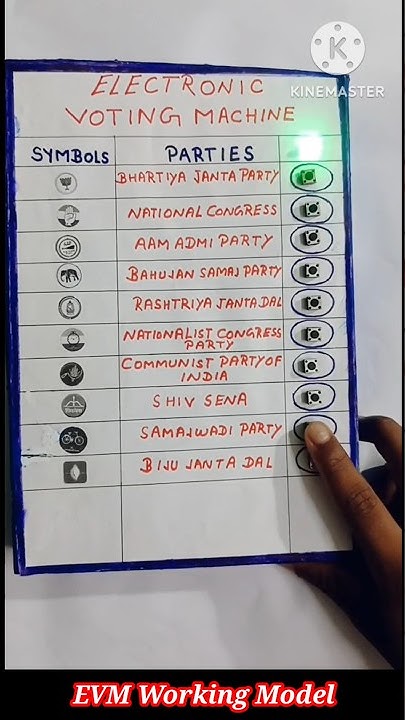 KINEMASTER
ELECTRONIC
VOTING MACHINE
SYMBOLS PARTIES
BHARTIYA JANTA PARTY
NATIONAL CONGRESS
AAM ADMI PARTY
BAHUJAN SAMAJ PARTY
RASHTRIYA JANTA DAL
NATIONALIST CONGRESS
PARTY
COMMUNIST PARTY OF
INDIA
SHIV SENA
SAMAJWADI PARTY
BIJU JANTA DAL
EVM Working Model